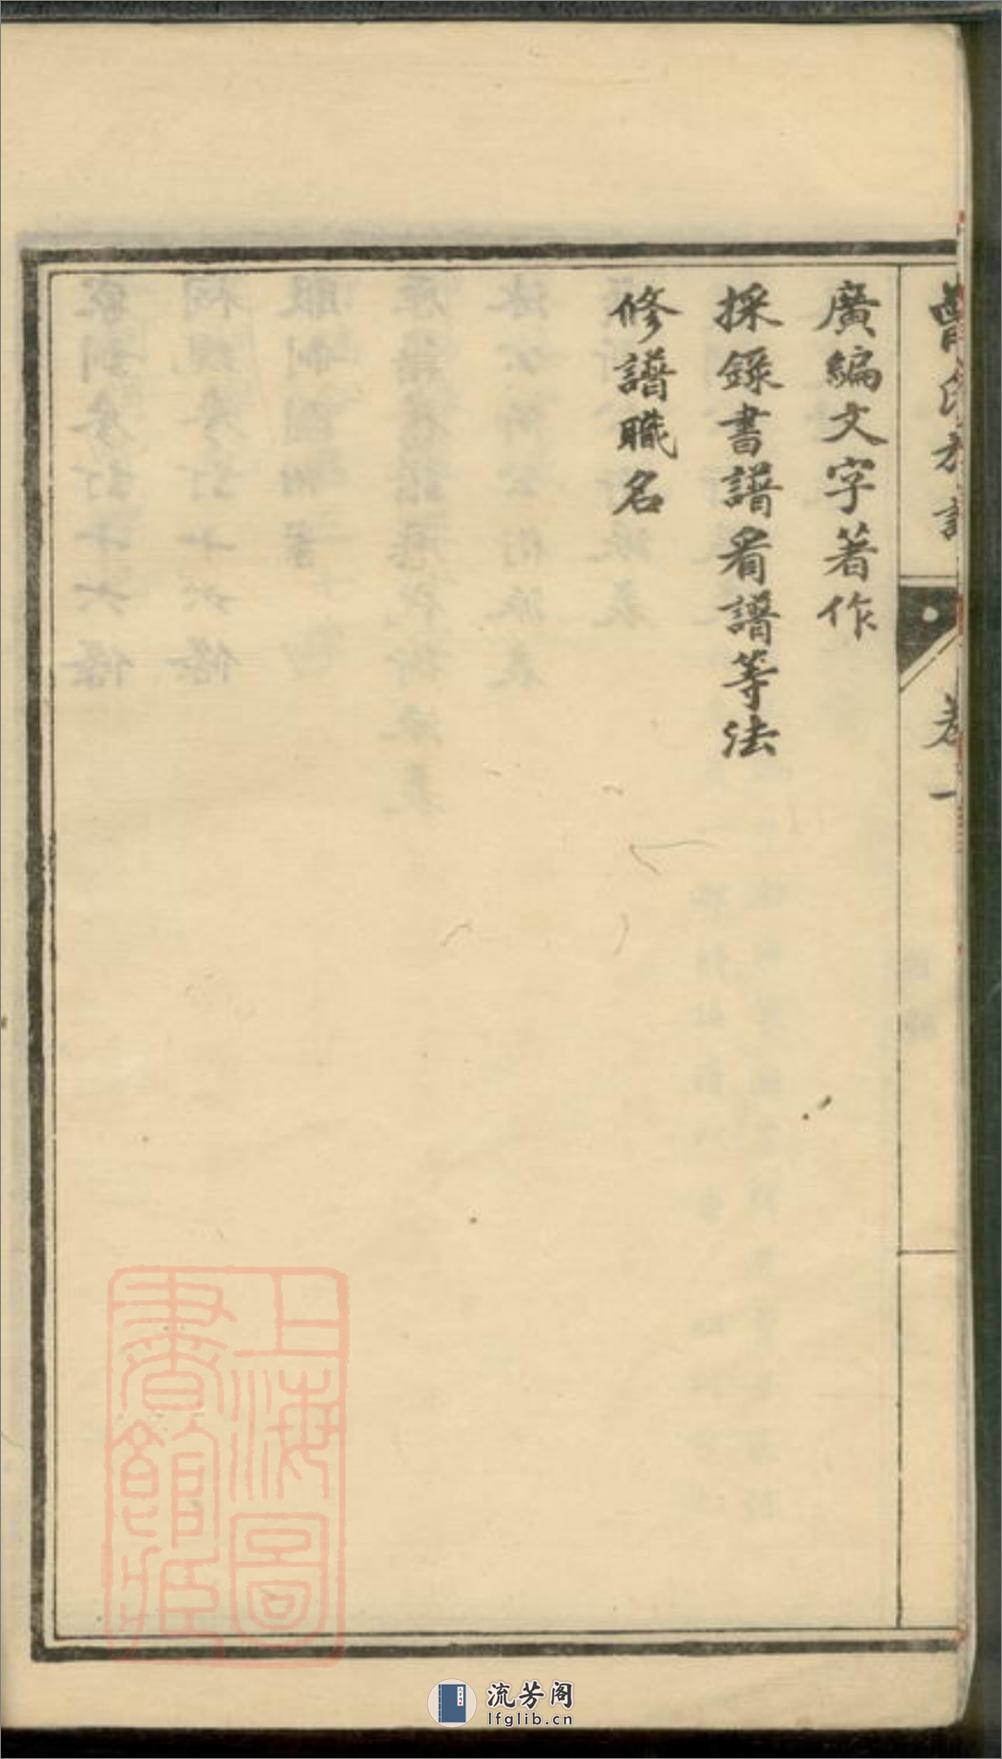 曹氏族譜 卷一
廣編文字著作
採錄書譜看譜等法
修譜職名
上海圖書館藏
流芳阁
lfglib.cn